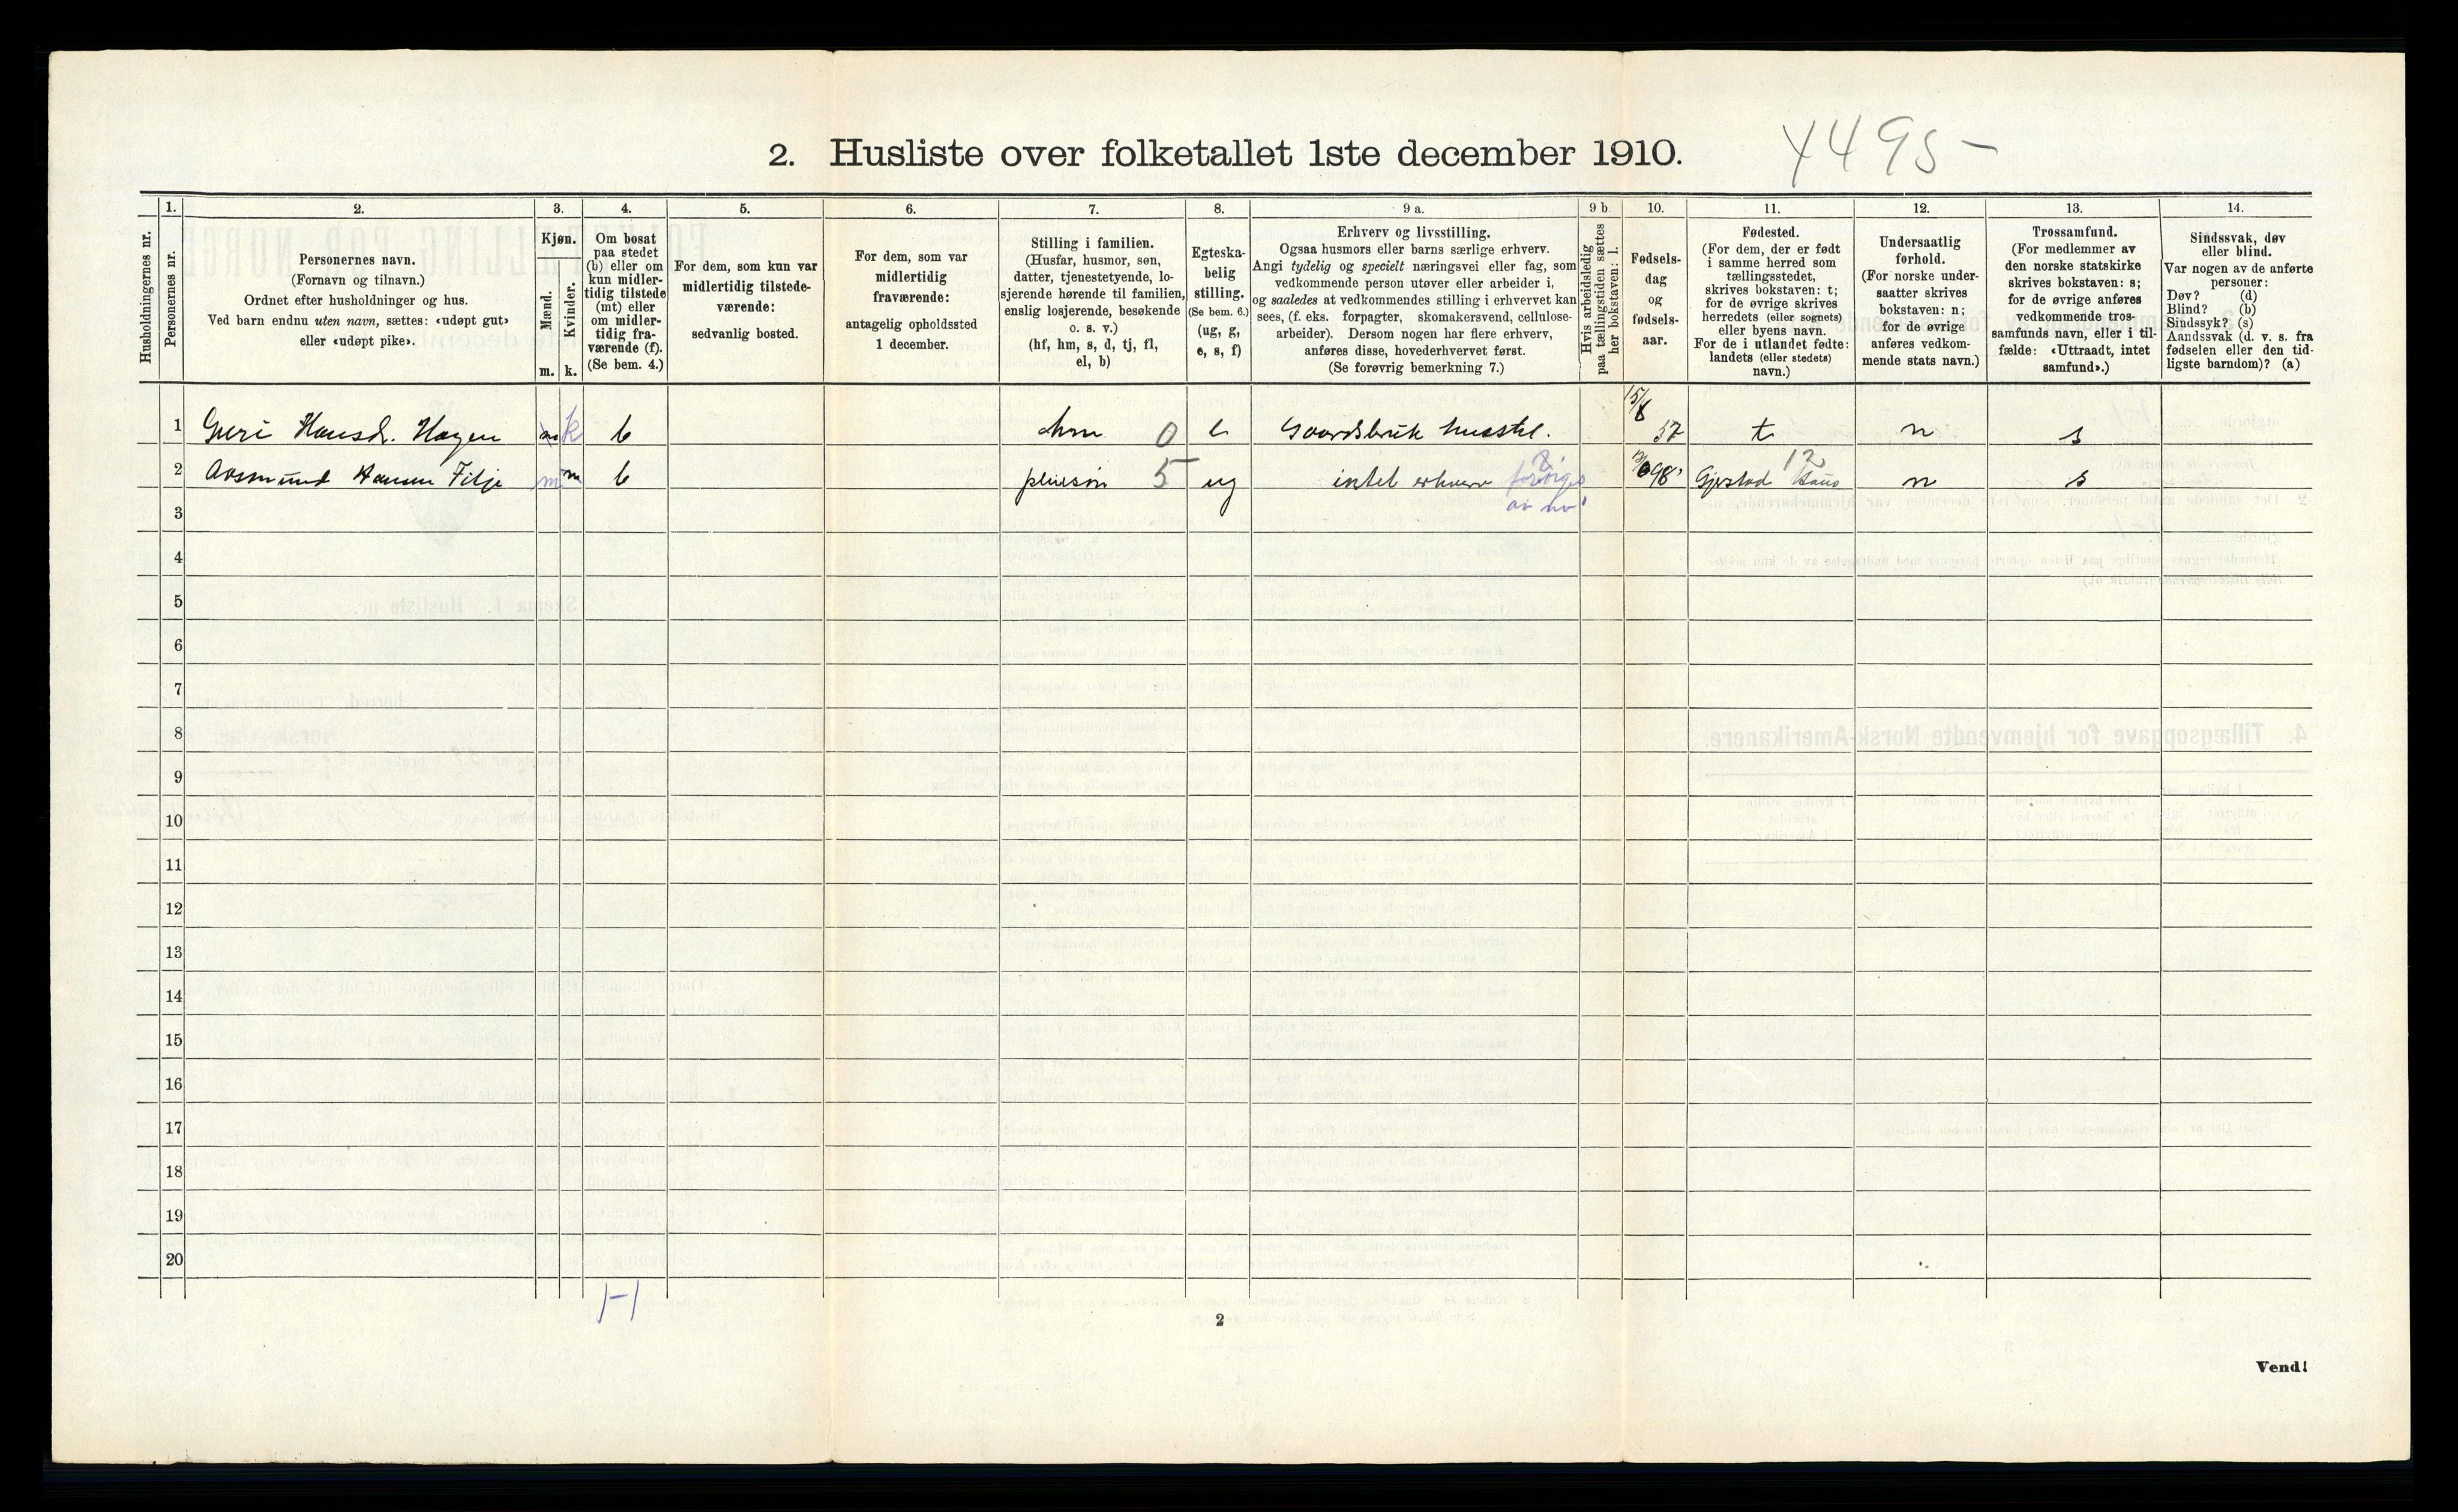 2. Husliste over folketallet 1ste december 1910.
4495-
Husholdningernes nr.
1.
Personernes nr.
2.
Personernes navn.
(Fornavn og tilnavn.)
Ordnet efter husholdninger og hus.
Ved barn endnu uten navn, sættes: «udøpt gut»
eller «udøpt pike».
3.
Kjøn.
Mænd.
Kvinder.
m. k.
4.
Om bosat
paa stedet
(b) eller om
kun midler-
tidig tilstede
(mt) eller
om midler-
tidig fra-
værende (f).
(Se bem. 4.)
5.
For dem, som kun var
midlertidig tilstede-
værende:
sedvanlig bosted.
6.
For dem, som var
midlertidig
fraværende:
antagelig opholdssted
1 december.
7.
Stilling i familien.
(Husfar, husmor, søn,
datter, tjenestetyende, lo-
sjerende hørende til familien,
enslig losjerende, besøkende
o. s. v.)
(hf, hm, s, d, tj, fl,
el, b)
8.
Egteska-
belig
stilling.
(Se bem. 6.)
(ug, g,
e, s, f)
9 a.
Erhverv og livsstilling.
Ogsaa husmors eller barns særlige erhverv.
Angi tydelig og specielt næringsvei eller fag, som
vedkommende person utøver eller arbeider i,
og saaledes at vedkommendes stilling i erhvervet kan
sees, (f. eks. forpagter, skomakersvend, cellulose-
arbeider). Dersom nogen har flere erhverv,
anføres disse, hovederhvervet først.
(Se forøvrig bemerkning 7.)
9 b
Hvis arbeidsledig
paa tællingstiden sættes
her bokstaven: l.
10.
Fødsels-
dag
og
fødsels-
aar.
11.
Fødested.
(For dem, der er født
i samme herred som
tællingsstedet,
skrives bokstaven: t;
for de øvrige skrives
herredets (eller sognets)
eller byens navn.
For de i utlandet fødte:
landets (eller stedets)
navn.)
12.
Undersaatlig
forhold.
(For norske under-
saatter skrives
bokstaven: n;
for de øvrige
anføres vedkom-
mende stats navn.)
13.
Trossamfund.
(For medlemmer av
den norske statskirke
skrives bokstaven: s;
for de øvrige anføres
vedkommende tros-
samfunds navn, eller i til-
fælde: «Uttraadt, intet
samfund».)
14.
Sindssvak, døv
eller blind.
Var nogen av de anførte
personer:
Døv? (d)
Blind? (b)
Sindssyk? (s)
Aandssvak (d. v. s. fra
fødselen eller den tid-
ligste barndom)? (a)
1 Guri Hansd. Hagen k b hm 0 e Gaardsbruk husstel. 15/8 57 t n s
2 Aasmund Hansen Filje m b pleiesön 5 ug intet erhverv forsörges 98 Gjerstad 12 n s
av nr 1
3
4
5
6
7
8
9
10
11
12
13
14
15
16
17
18
19
20
1-1
2
Vend!